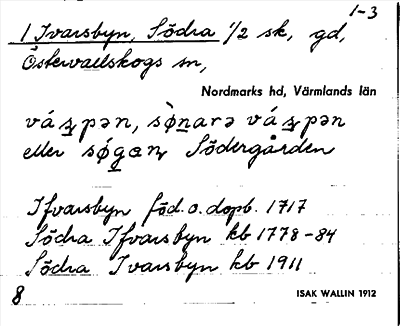 1-3
1 Ivarsbyn, Södra 1/2 sk, gd,
Östervallskogs sn,
Nordmarks hd, Värmlands län
vás̱pən, sò̱narə vás̱pən
eller sǿgan, Södergården
Ifvarsbyn föd. o. dopb. 1717
Södra Ifvarsbyn kb 1778-84
Södra Ivarsbyn kb 1911
8
ISAK WALLIN 1912